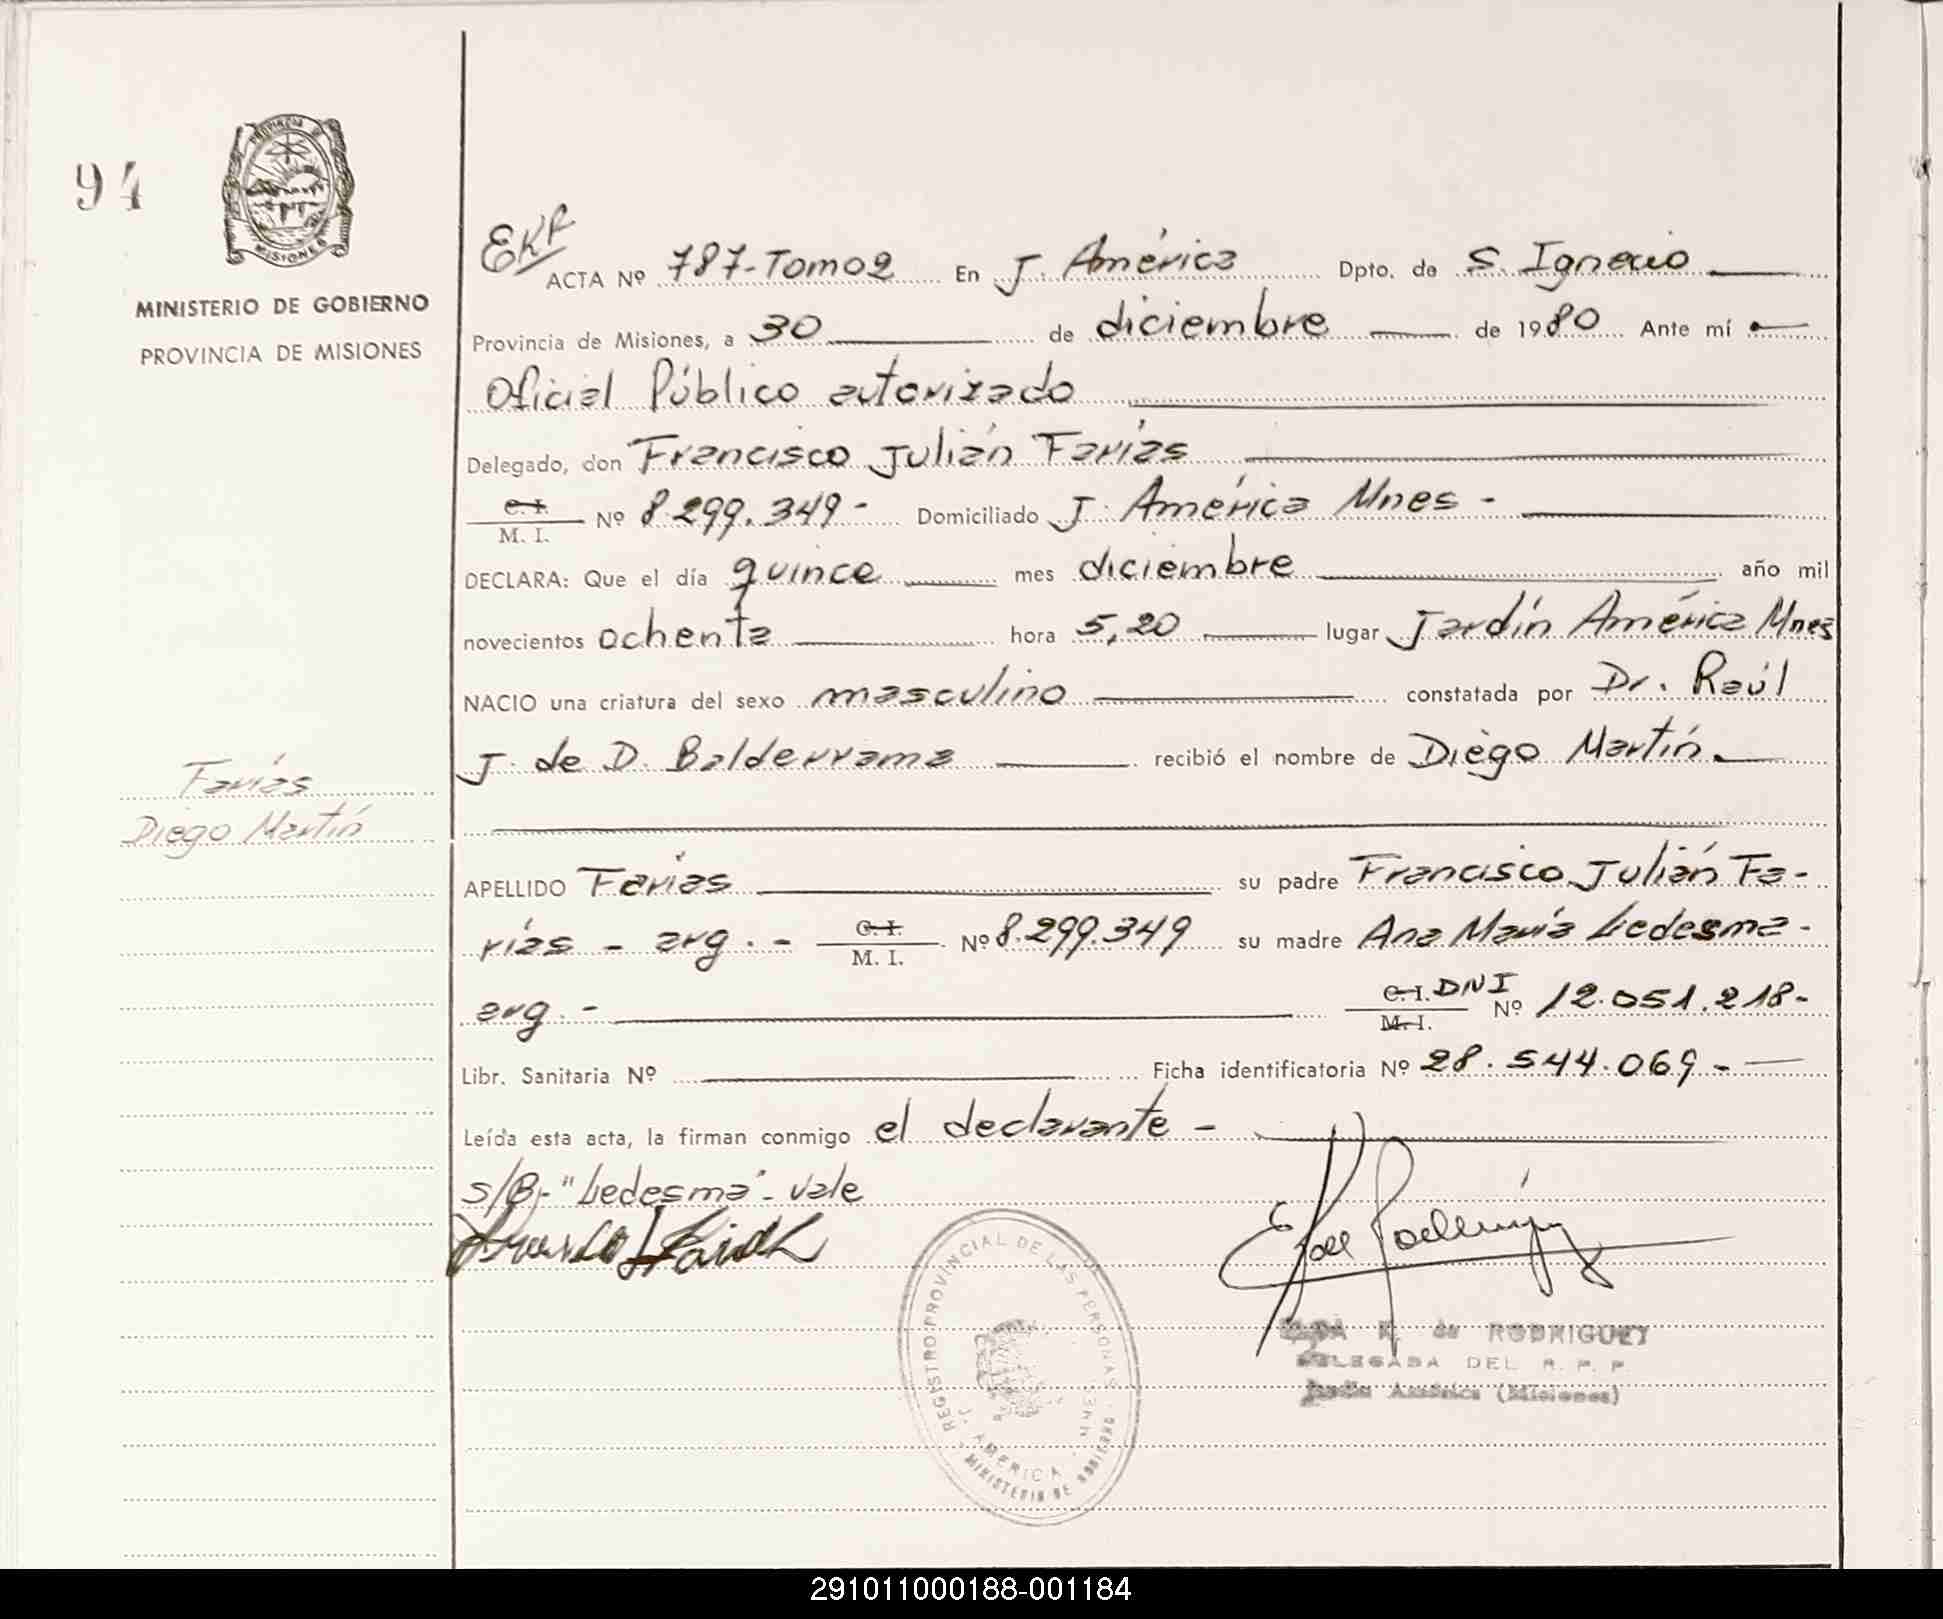 94
PROVINCIA DE
MISIONES
MINISTERIO DE GOBIERNO
PROVINCIA DE MISIONES
Farías
Diego Martín
EKR
ACTA Nº 787-Tomo2 En J. América Dpto. de S. Ignacio
Provincia de Misiones, a 30 de diciembre de 1980 Ante mí
Oficial Público autorizado
Delegado, don Francisco Julián Farías
C.I.
M. I. Nº 8.299.349- Domiciliado J. América Mnes -
DECLARA: Que el día quince mes diciembre año mil
novecientos ochenta hora 5,20 lugar Jardín América Mnes
NACIO una criatura del sexo masculino constatada por Dr. Raúl
J. de D. Balderrama recibió el nombre de Diego Martín.
APELLIDO Farías su padre Francisco Julián Fa-
rías - arg. - C.I. M. I. Nº 8.299.349 su madre Ana María Ledesma -
arg. - C.I. DNI M.I. Nº 12.051.218-
Libr. Sanitaria Nº Ficha identificatoria Nº 28.544.069 -
Leída esta acta, la firman conmigo el declarante -
s/B- "Ledesma"- vale
REGISTRO PROVINCIAL DE LAS PERSONAS
J. AMERICA - MNES
MINISTERIO DE GOBIERNO
K. de RODRIGUEZ
DELEGADA DEL R. P. P.
Jardín América (Misiones)
291011000188-001184